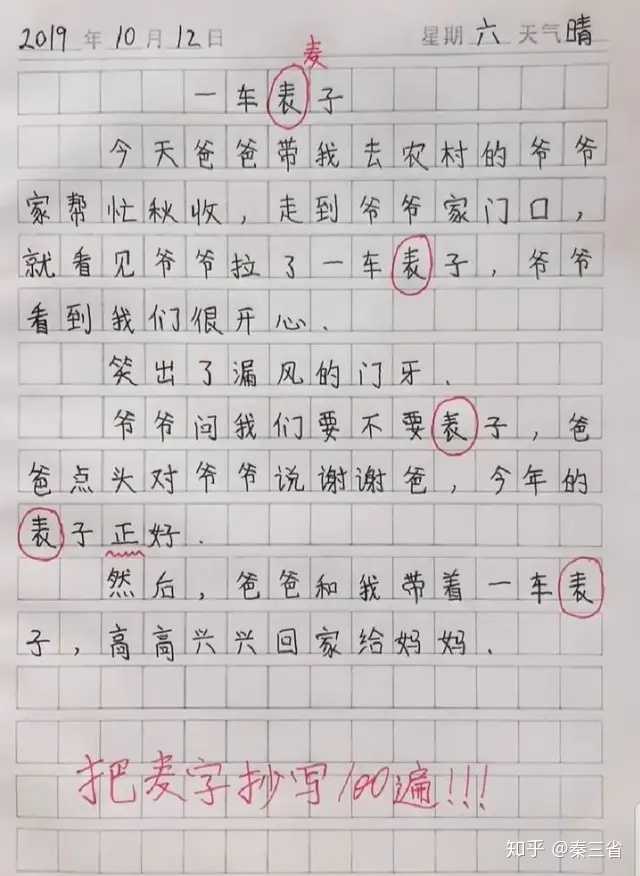 2019年10月12日 星期六 天气晴
麦
一车表子
今天爸爸带我去农村的爷爷
家帮忙秋收，走到爷爷家门口，
就看见爷爷拉了一车表子，爷爷
看到我们很开心.
笑出了漏风的门牙.
爷爷问我们要不要表子，爸
爸点头对爷爷说谢谢爸，今年的
表子正好.
然后，爸爸和我带着一车表
子，高高兴兴回家给妈妈.
把麦字抄写100遍!!!
知乎 @秦三省